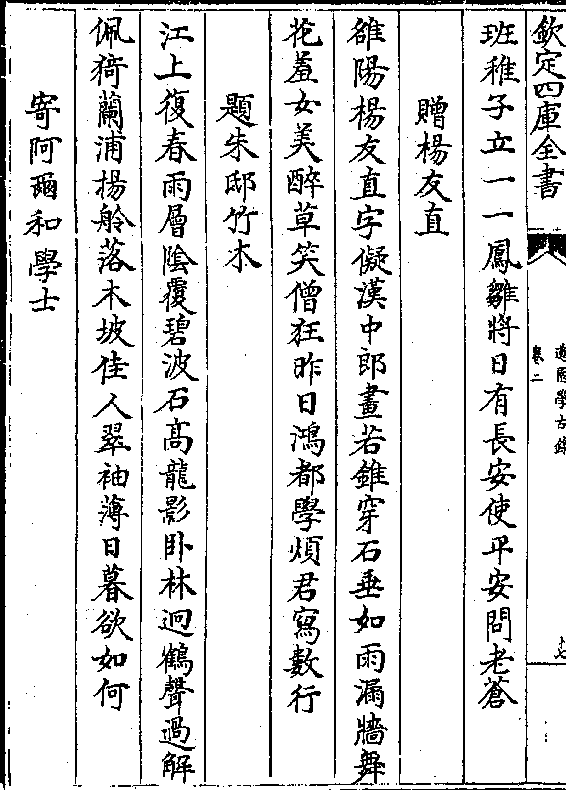 欽定四庫全書
道園學古錄
卷二
十七
班稚子立一一鳳雛將日有長安使平安問老蒼
贈楊友直
雒陽楊友直字儗漢中郎畫若錐穿石垂如雨漏牆舞
花羞女美醉草笑僧狂昨日鴻都學煩君寫數行
題朱邸竹木
江上復春雨層陰覆碧波石髙龍影卧林迥鶴聲過解
佩猗蘭浦揚舲落木坡佳人翠袖薄日暮欲如何
寄阿爾和學士